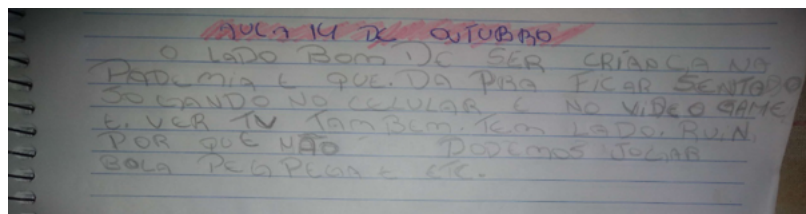 AULA 14 DE OUTUBRO
O LADO BOM DE SER CRIANÇA NA
PADEMIA E QUE. DA PRA FICAR SENTADO
JOGANDO NO CELULAR E NO VIDEO GAME
E. VER TV TAMBEM. TEM LADO. RUIN.
POR QUE NÃO PODEMOS JOGAR
BOLA PEGA PEGA E ETC.